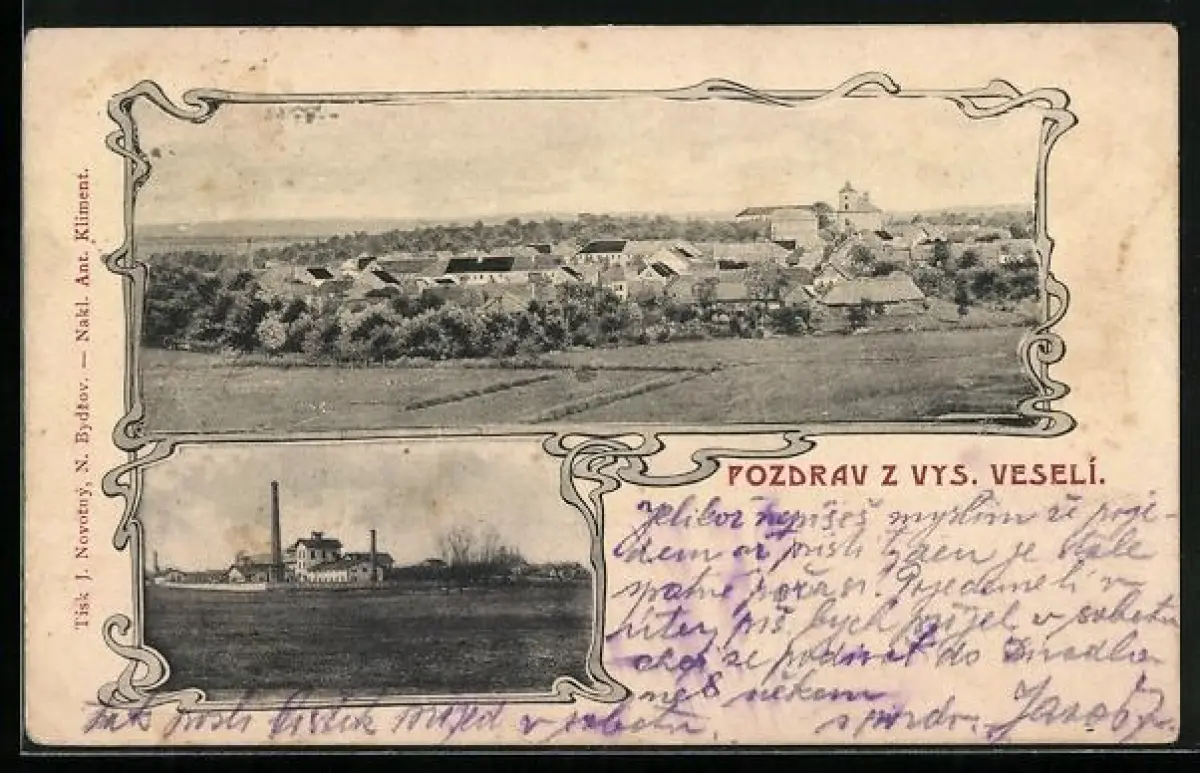 Tisk J. Novotný, N. Bydžov. — Nakl. Ant. Kliment.
POZDRAV Z VYS. VESELÍ.
Jelikož nepíšeš myslím že poje-
dem až příští týden je stále
špatné počasí. Pojedeme li v
úterý piš bych přijel v sobotu
chci se podívat do Divadla
neb někam
tak pošli lístek přijed v sobotu
s pozdr.